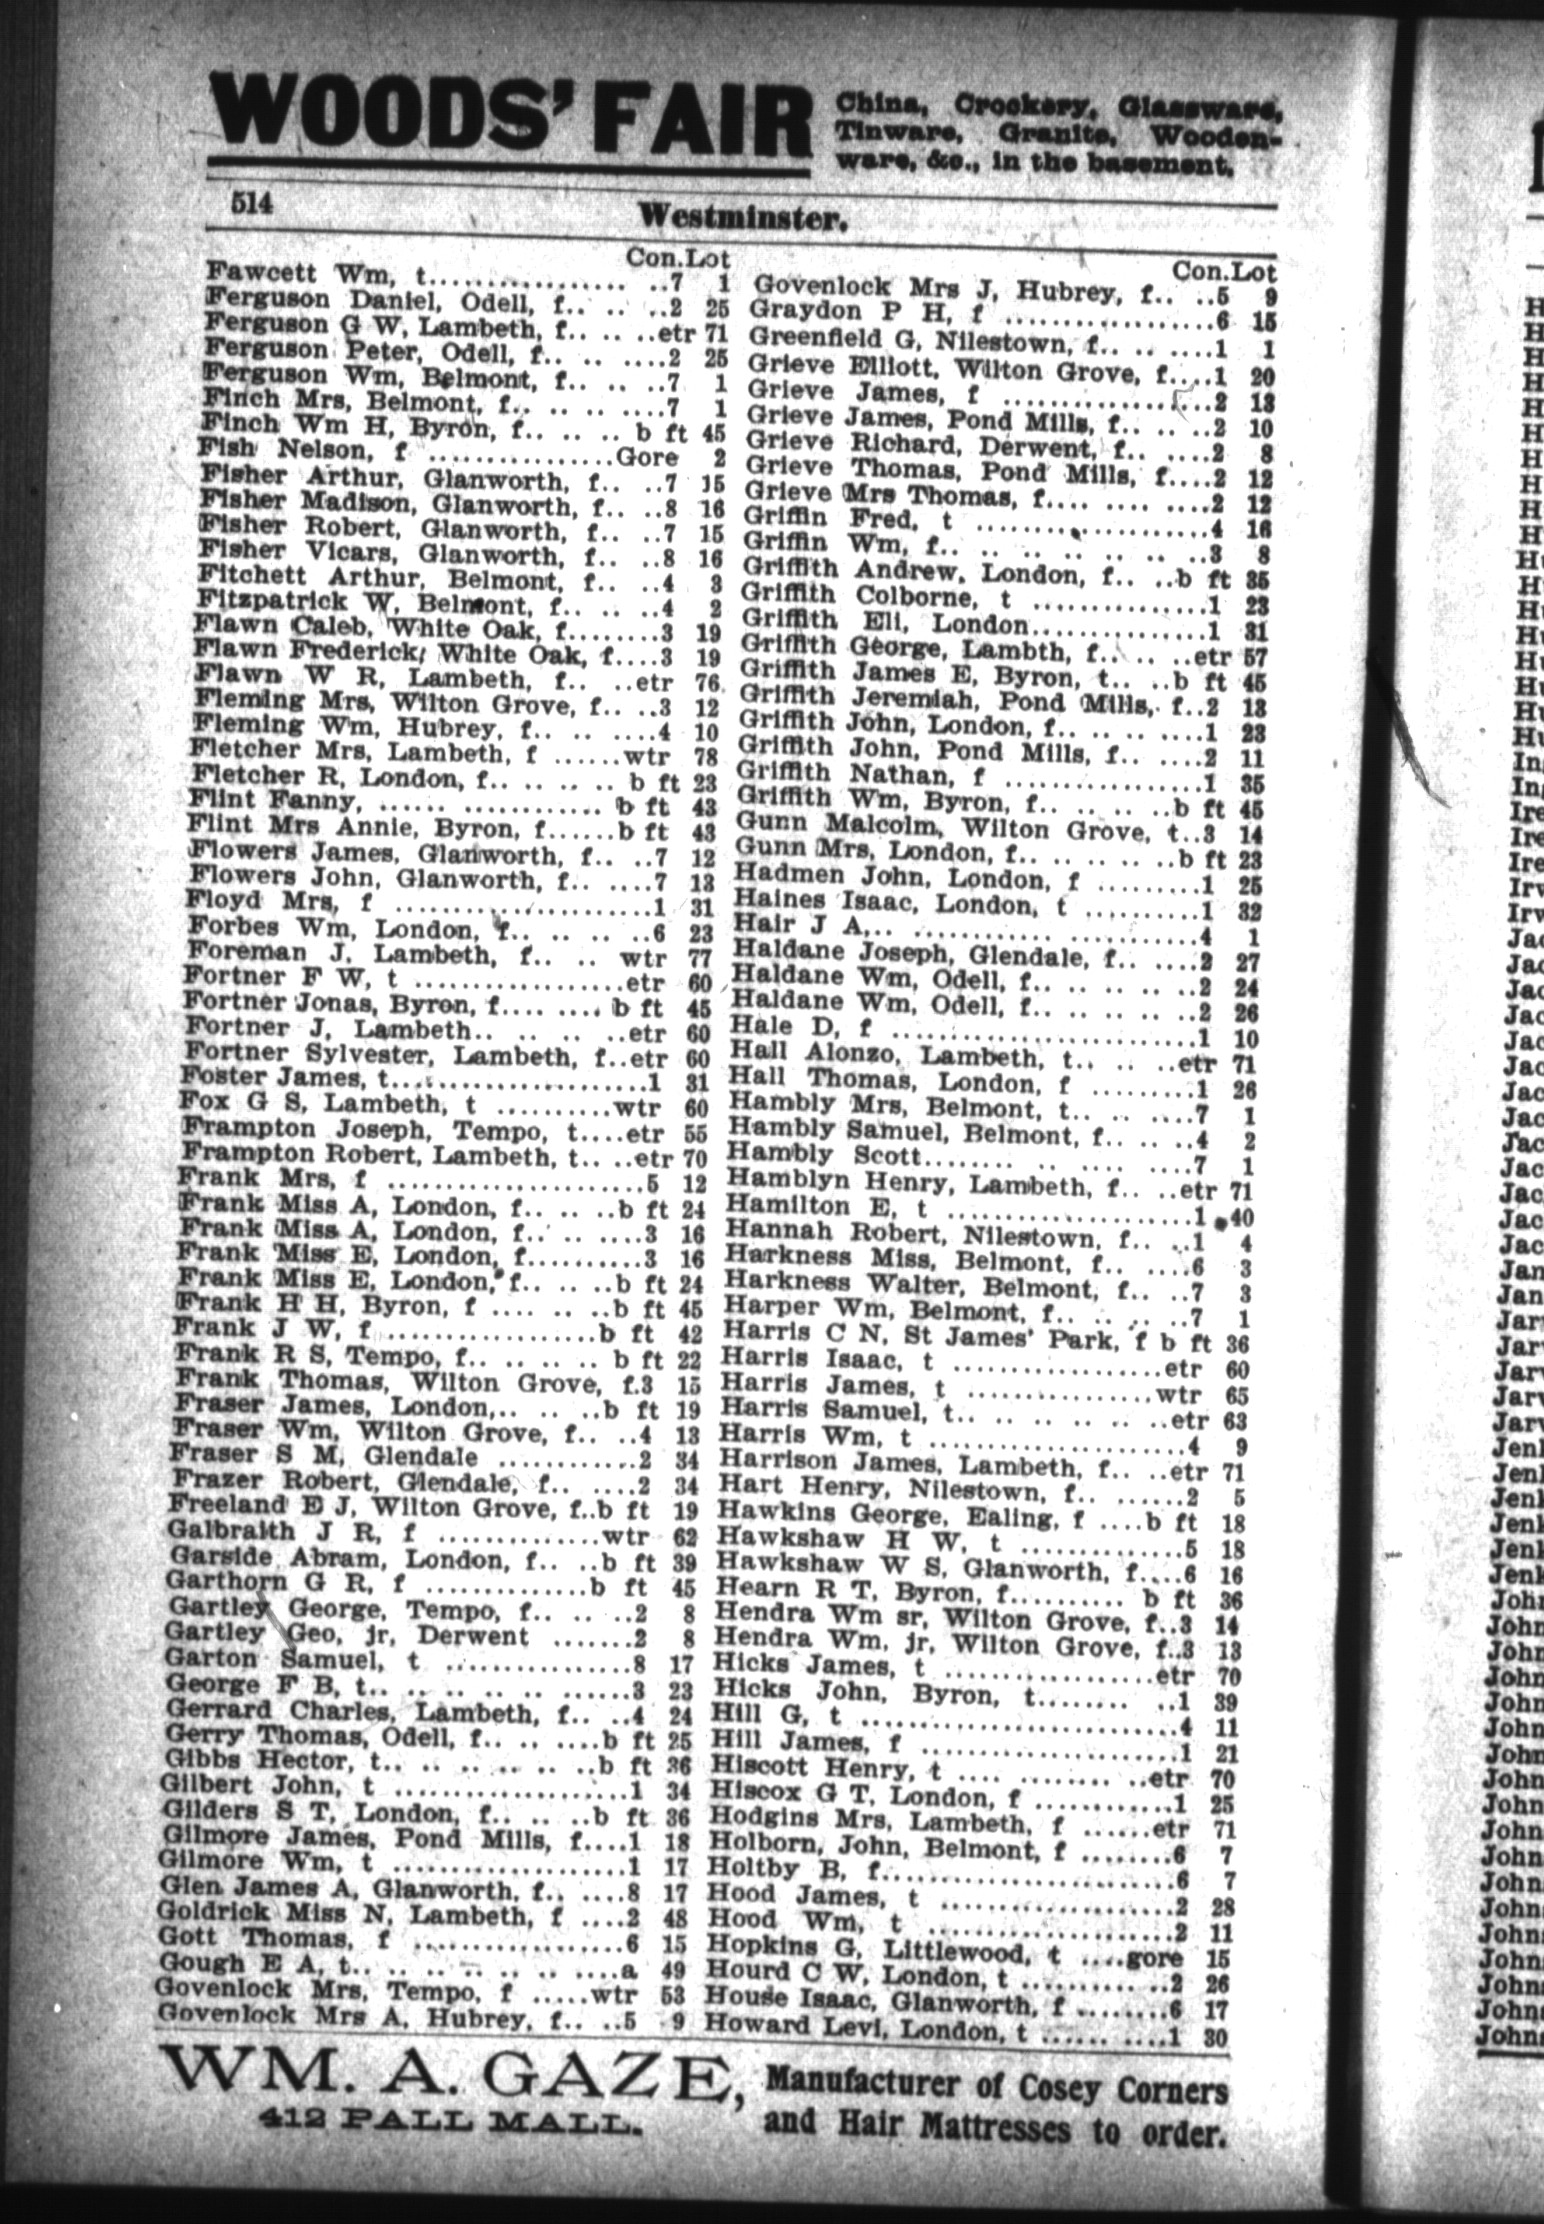 WOODS' FAIR
China, Crockery, Glassware,
Tinware, Granite, Wooden-
ware, &c., in the basement.
514
Westminster.
Con.Lot
Fawcett Wm, t.................. ..7 1
Ferguson Daniel, Odell, f.. .. ..2 25
Ferguson G W, Lambeth, f.. .. ..etr 71
Ferguson Peter, Odell, f.. .. ....2 25
Ferguson Wm, Belmont, f.. .. ..7 1
Finch Mrs, Belmont, f.. .. .. ....7 1
Finch Wm H, Byron, f.. .. .. b ft 45
Fish Nelson, f ................Gore 2
Fisher Arthur, Glanworth, f.. ..7 15
Fisher Madison, Glanworth, f.. ..8 16
Fisher Robert, Glanworth, f.. ..7 15
Fisher Vicars, Glanworth, f.. ..8 16
Fitchett Arthur, Belmont, f.. ..4 3
Fitzpatrick W, Belmont, f.. .. ..4 2
Flawn Caleb, White Oak, f........3 19
Flawn Frederick, White Oak, f....3 19
Flawn W R, Lambeth, f.. ..etr 76
Fleming Mrs, Wilton Grove, f.. ..3 12
Fleming Wm, Hubrey, f.. .. ....4 10
Fletcher Mrs, Lambeth, f ......wtr 78
Fletcher R, London, f.. .. .. .. b ft 23
Flint Fanny, ...... .............. b ft 43
Flint Mrs Annie, Byron, f......b ft 43
Flowers James, Glanworth, f.. ..7 12
Flowers John, Glanworth, f.. ....7 13
Floyd Mrs, f ........................1 31
Forbes Wm, London, f.. .. .. ..6 23
Foreman J, Lambeth, f.. .. wtr 77
Fortner F W, t ..................etr 60
Fortner Jonas, Byron, f.... .... b ft 45
Fortner J, Lambeth.. .. .. ..etr 60
Fortner Sylvester, Lambeth, f..etr 60
Foster James, t......................1 31
Fox G S, Lambeth, t ..........wtr 60
Frampton Joseph, Tempo, t....etr 55
Frampton Robert, Lambeth, t.. ..etr 70
Frank Mrs, f ......................5 12
Frank Miss A, London, f.. .. ..b ft 24
Frank Miss A, London, f.. .. ....3 16
Frank Miss E, London, f..........3 16
Frank Miss E, London, f.. .. ..b ft 24
Frank H H, Byron, f .... .. ..b ft 45
Frank J W, f ..................b ft 42
Frank R S, Tempo, f.. .. .. .. b ft 22
Frank Thomas, Wilton Grove, f.3 15
Fraser James, London,.. .. ..b ft 19
Fraser Wm, Wilton Grove, f.. ..4 13
Fraser S M, Glendale ............2 34
Frazer Robert, Glendale, f.. ....2 34
Freeland E J, Wilton Grove, f..b ft 19
Galbraith J R, f ...............wtr 62
Garside Abram, London, f.. ..b ft 39
Garthorn G R, f ..............b ft 45
Gartley George, Tempo, f.. .. ..2 8
Gartley Geo, jr, Derwent .......2 8
Garton Samuel, t ................8 17
George F B, t.. .. .. .. .. ......3 23
Gerrard Charles, Lambeth, f.. ..4 24
Gerry Thomas, Odell, f.. .. ....b ft 25
Gibbs Hector, t.. .. .. .. .. ..b ft 36
Gilbert John, t ....................1 34
Gilders S T, London, f.. .. ..b ft 36
Gilmore James, Pond Mills, f....1 18
Gilmore Wm, t ....................1 17
Glen James A, Glanworth, f.. ....8 17
Goldrick Miss N, Lambeth, f ....2 48
Gott Thomas, f ..................6 15
Gough E A, t.. .. .. .. .. .. ....a 49
Govenlock Mrs, Tempo, f .....wtr 53
Govenlock Mrs A, Hubrey, f.. ..5 9
Con.Lot
Govenlock Mrs J, Hubrey, f.. ..5 9
Graydon P H, f ..................6 15
Greenfield G, Nilestown, f.. .. ....1 1
Grieve Elliott, Wilton Grove, f....1 20
Grieve James, f ..................2 13
Grieve James, Pond Mills, f.. .. ..2 10
Grieve Richard, Derwent, f.. ....2 8
Grieve Thomas, Pond Mills, f....2 12
Grieve Mrs Thomas, f.... .... ....2 12
Griffin Fred, t ....................4 16
Griffin Wm, f.. .. .. .. .. .. ..3 8
Griffith Andrew, London, f.. ..b ft 35
Griffith Colborne, t ...............1 23
Griffith Eli, London...............1 31
Griffith George, Lambth, f.. .. ..etr 57
Griffith James E, Byron, t.. ..b ft 45
Griffith Jeremiah, Pond Mills, f..2 13
Griffith John, London, f.. .. .. ..1 23
Griffith John, Pond Mills, f.. ....2 11
Griffith Nathan, f ..................1 35
Griffith Wm, Byron, f.. .. .. ..b ft 45
Gunn Malcolm, Wilton Grove, t..3 14
Gunn Mrs, London, f.. .. .. .. ..b ft 23
Hadmen John, London, f .........1 25
Haines Isaac, London, t ..........1 32
Hair J A,.. ............ ............4 1
Haldane Joseph, Glendale, f.. ....2 27
Haldane Wm, Odell, f.. .. .. .. ..2 24
Haldane Wm, Odell, f.. .. .. .. ..2 26
Hale D, f ..........................1 10
Hall Alonzo, Lambeth, t.. .. ..etr 71
Hall Thomas, London, f .........1 26
Hambly Mrs, Belmont, t.. .. ....7 1
Hambly Samuel, Belmont, f.. .. ..4 2
Hambly Scott........ .. .... ....7 1
Hamblyn Henry, Lambeth, f.. ..etr 71
Hamilton E, t ......................1 40
Hannah Robert, Nilestown, f.. ..1 4
Harkness Miss, Belmont, f.. ....6 3
Harkness Walter, Belmont, f.. ..7 3
Harper Wm, Belmont, f.. .. .. ..7 1
Harris C N, St James' Park, f b ft 36
Harris Isaac, t ..................etr 60
Harris James, t ................wtr 65
Harris Samuel, t.. .. .. .. .. ..etr 63
Harris Wm, t ......................4 9
Harrison James, Lambeth, f.. ..etr 71
Hart Henry, Nilestown, f.. ......2 5
Hawkins George, Ealing, f ....b ft 18
Hawkshaw H W, t ...............5 18
Hawkshaw W S, Glanworth, f....6 16
Hearn R T, Byron, f.......... b ft 36
Hendra Wm sr, Wilton Grove, f..3 14
Hendra Wm, jr, Wilton Grove, f..3 13
Hicks James, t ..................etr 70
Hicks John, Byron, t........ ..1 39
Hill G, t ............................4 11
Hill James, f ......................1 21
Hiscott Henry, t .... ........ ..etr 70
Hiscox G T, London, f ............1 25
Hodgins Mrs, Lambeth, f ......etr 71
Holborn, John, Belmont, f ........6 7
Holtby B, f..........................6 7
Hood James, t ....................2 28
Hood Wm, t ......................2 11
Hopkins G, Littlewood, t ....gore 15
Hourd C W, London, t ............2 26
House Isaac, Glanworth, f ........6 17
Howard Levi, London, t ..........1 30
WM. A. GAZE,
412 PALL MALL.
Manufacturer of Cosey Corners
and Hair Mattresses to order.